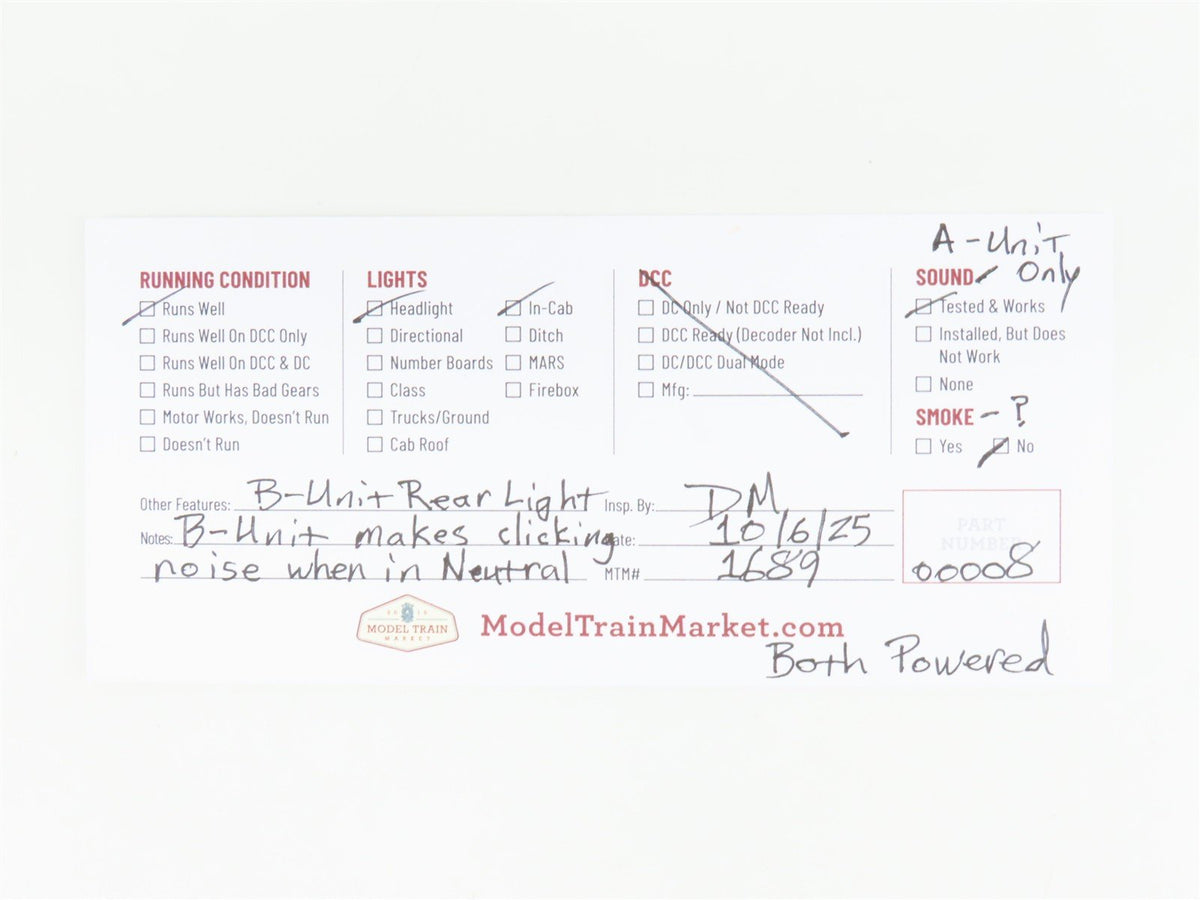 A-Unit
Only
RUNNING CONDITION
☐ Runs Well
☐ Runs Well On DCC Only
☐ Runs Well On DCC & DC
☐ Runs But Has Bad Gears
☐ Motor Works, Doesn't Run
☐ Doesn't Run
LIGHTS
☐ Headlight
☐ Directional
☐ Number Boards
☐ Class
☐ Trucks/Ground
☐ Cab Roof
☐ In-Cab
☐ Ditch
☐ MARS
☐ Firebox
DCC
☐ DC Only / Not DCC Ready
☐ DCC Ready (Decoder Not Incl.)
☐ DC/DCC Dual Mode
☐ Mfg:
SOUND
☐ Tested & Works
☐ Installed, But Does
Not Work
☐ None
SMOKE - ?
☐ Yes ☐ No
Other Features: B-Unit Rear Light
Notes: B-Unit makes clicking
noise when in Neutral
Insp. By: DM
Date: 10/6/25
MTM# 1689
PART
NUMBER
00008
MODEL TRAIN
MARKET
ModelTrainMarket.com
Both Powered